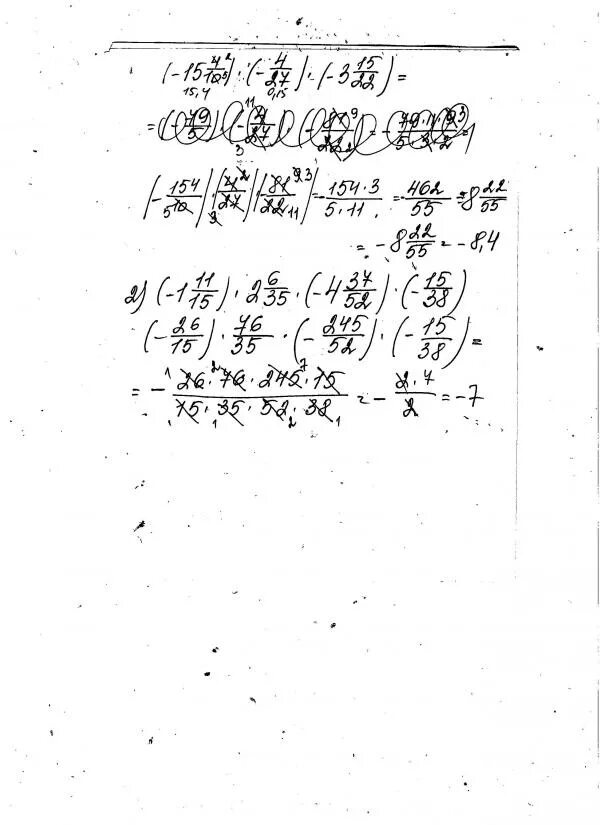 (-15 4/10) · (-4/27) · (-3 15/22) =
15,4
= (-79/5) · (-4/27) · (-81/22) = -
(-154/10) · (4/27) · (81/22) = -154·3/5·11 = -462/55 = 8 22/55
= -8 22/55 = -8,4
2) (-1 11/15) · 2 6/35 · (-4 37/52) · (-15/38)
(-26/15) · 76/35 · (-245/52) · (-15/38) =
= -26·76·245·15/15·35·52·38 = -2·7/2 = -7